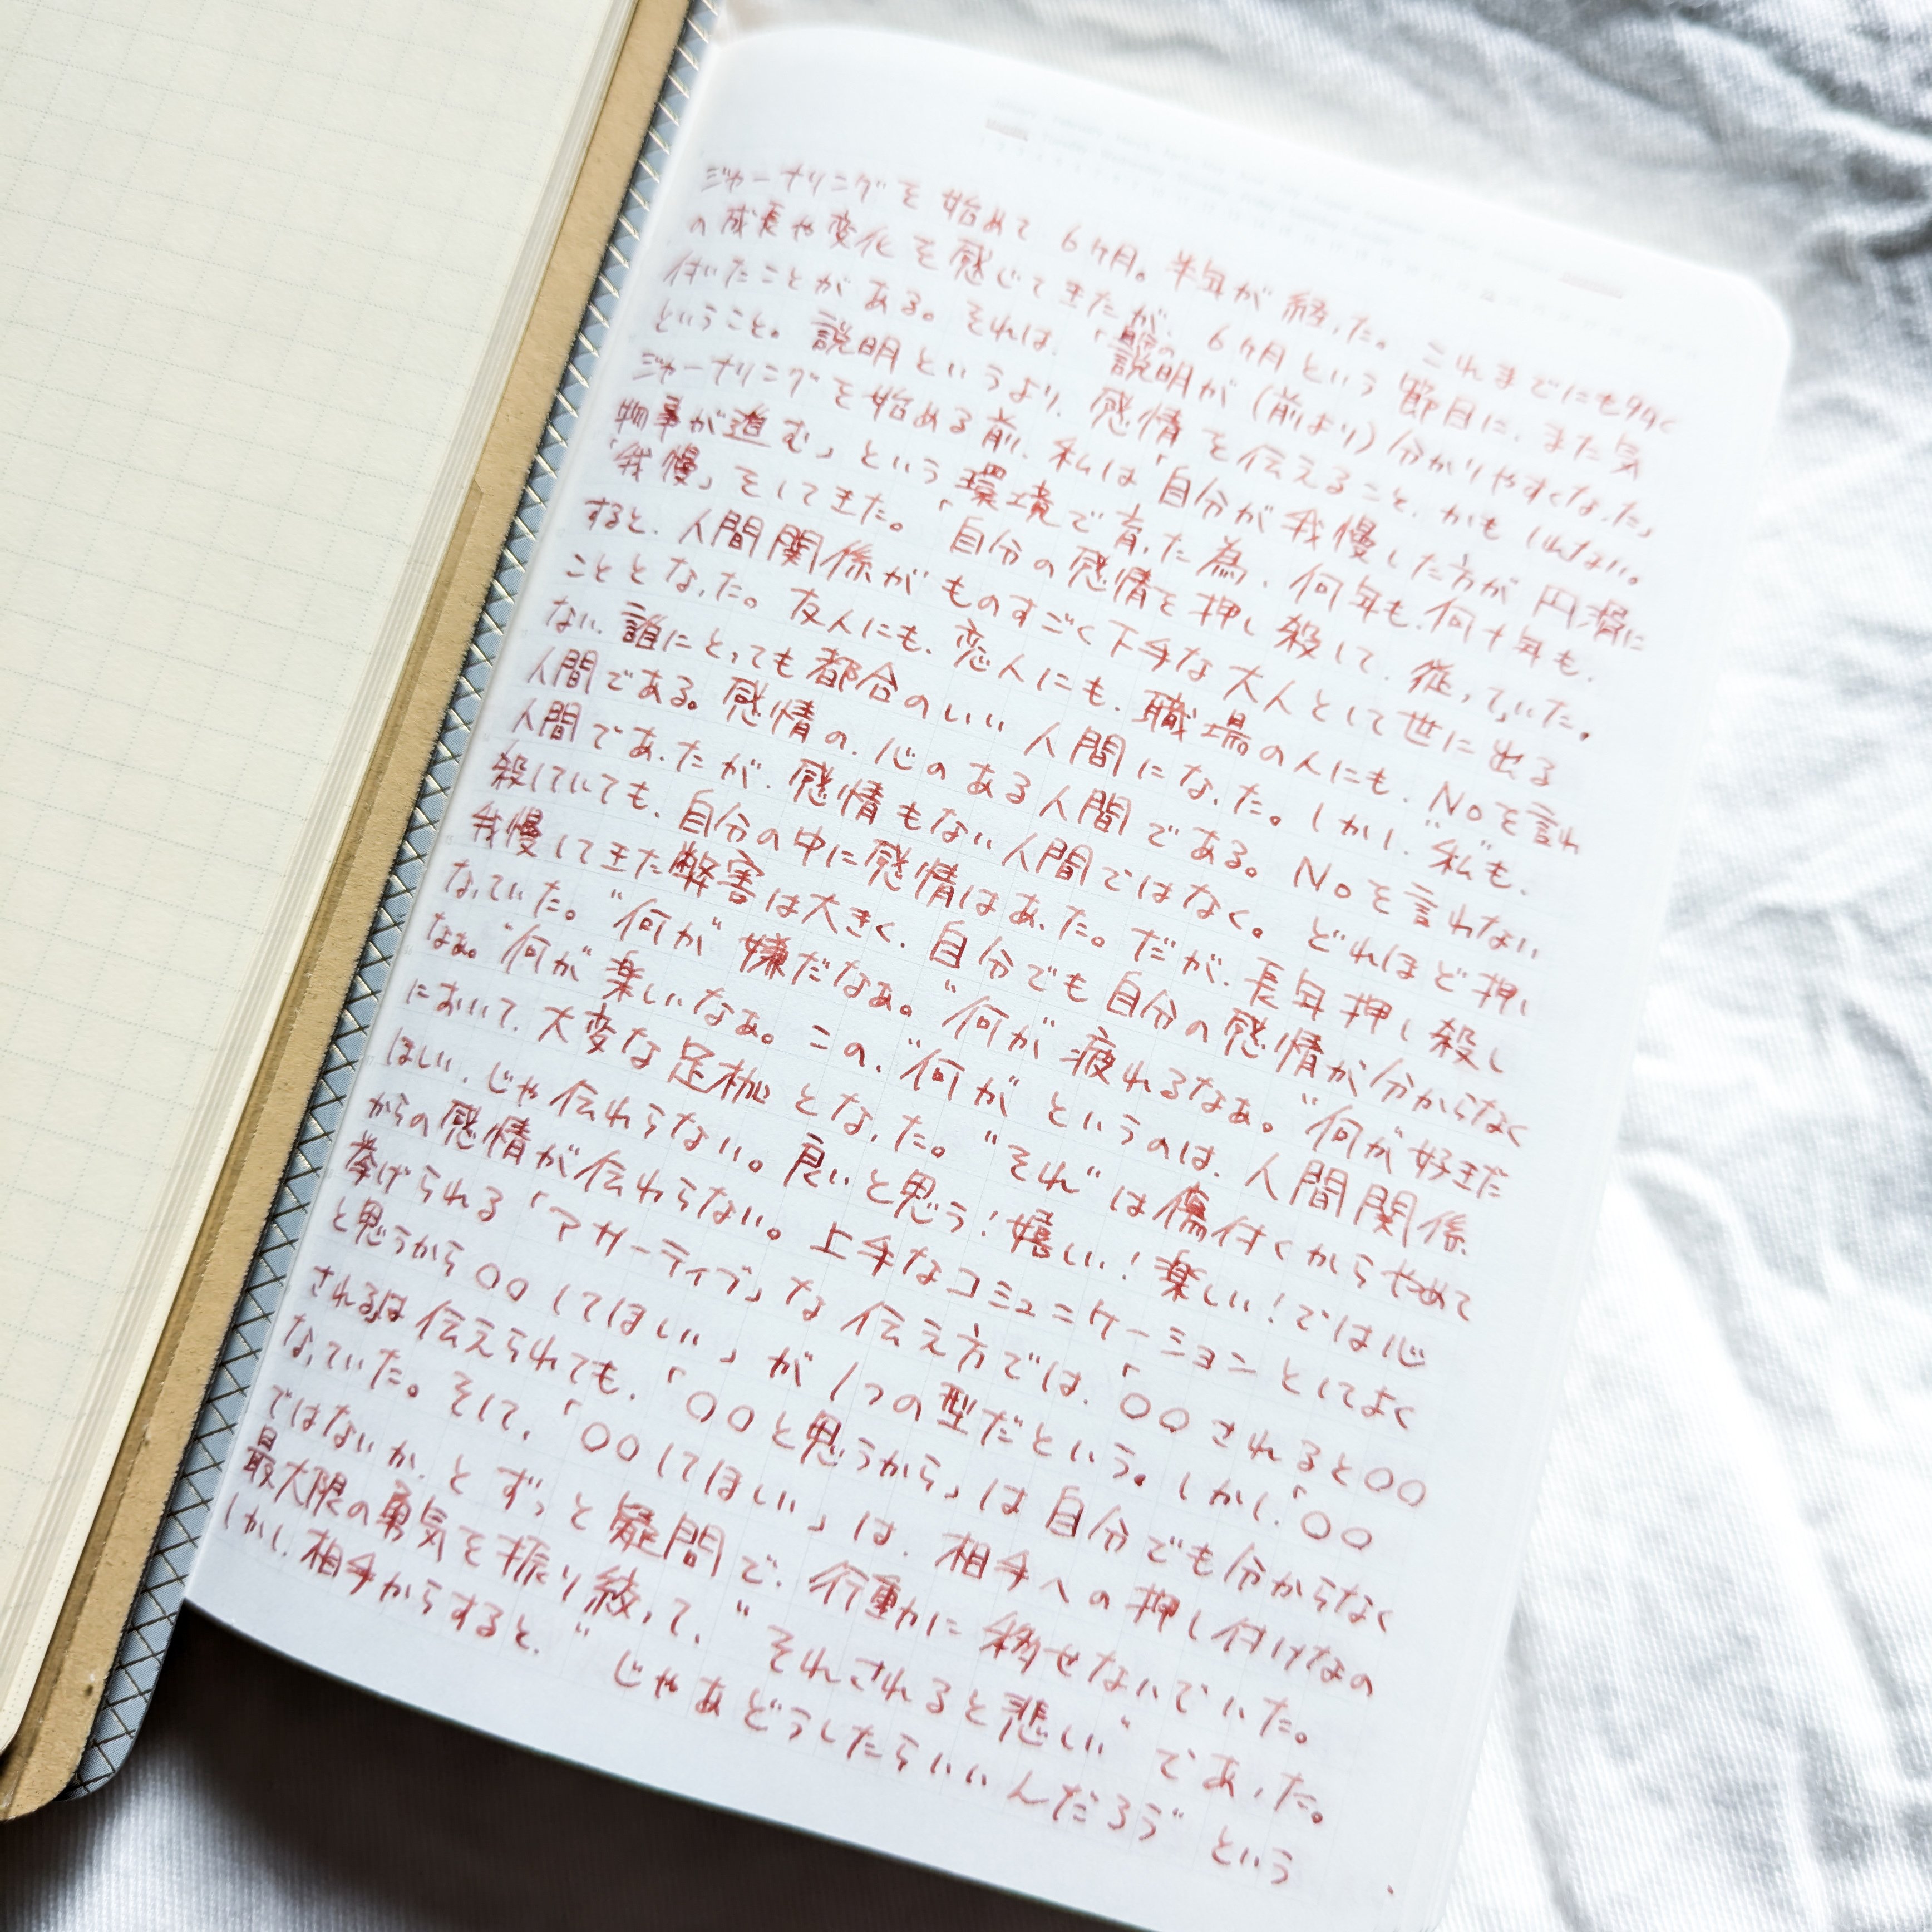 ジャーナリングを始めて6ケ月。半年が経った。これまでにも多く
の成長や変化を感じてきたが、6ケ月という節目に、また気
付いたことがある。それは、「最の説明が(前より)分かりやすくなった」
ということ。説明というより、感情を伝えること、かもしれない。
ジャーナリングを始める前、私は「自分が我慢した方が円滑に
物事が進む」という環境で育った為、何年も、何十年も、
「我慢」をしてきた。「自分の感情を押し殺して、従っていた。
すると、人間関係がものすごく下手な大人として世に出る
こととなった。友人にも、恋人にも、職場の人にも、Noを言わ
ない、誰にとっても都合のいい人間になった。しかし、"私"も、
人間である。感情の、心のある人間である。Noを言わない
人間であったが、感情もない人間ではなく。どれほど押し
殺していても、自分の中に感情はあった。だが、長年押し殺し
我慢してきた弊害は大きく、自分でも自分の感情が分からなく
なっていた。"何が"嫌だなぁ。"何が"疲れるなぁ。"何が"好きだ
なぁ。"何が"楽しいなぁ。この、"何が"というのは、人間関係
において、大変な足枷となった。"それ"は傷付くからやめて
ほしい、じゃ伝わらない。良いと思う!嬉しい!楽しい!では心
からの感情が伝わらない。上手なコミュニケーションとしてよく
挙げられる「アサーティブ」な伝え方では、「〇〇されると〇〇
と思うから〇〇してほしい」が1つの型だという。しかし、「〇〇
される」は伝えられても、「〇〇と思うから」は自分でも分からなく
なっていた。そして、「〇〇してほしい」は、相手への押し付けなの
ではないか、とずっと疑問で、行動に移せないでいた。
最大限の勇気を振り絞って、"それされると悲しい"であった。
しかし、相手からすると、"じゃあどうしたらいいんだろう"という